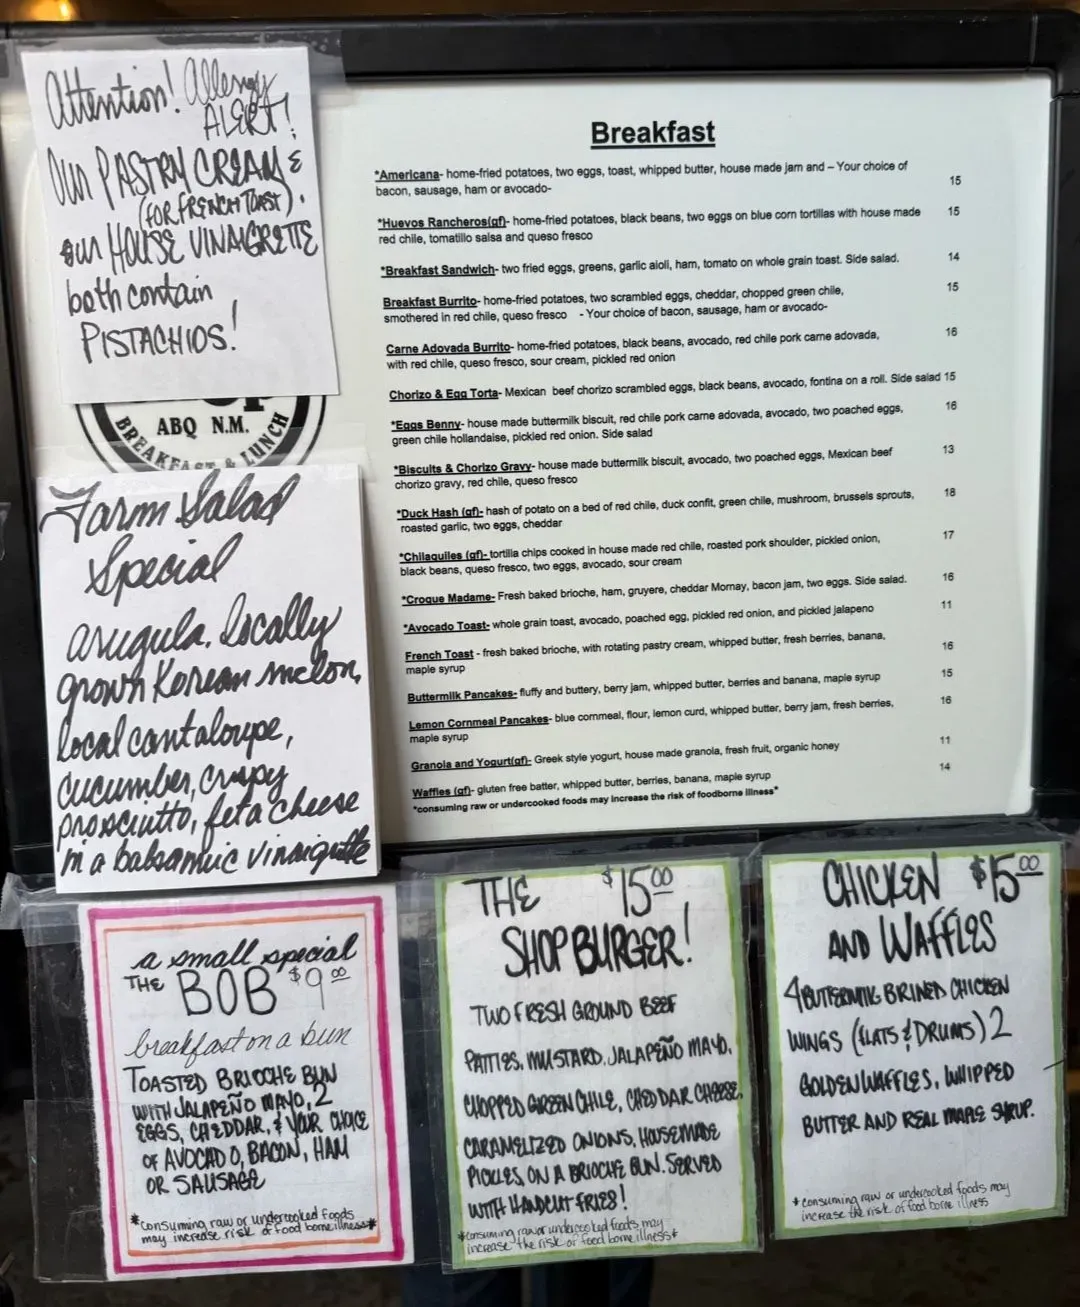 Attention! Allergy
ALERT!
OUR PASTRY CREAM &
(FOR FRENCH TOAST).
OUR HOUSE VINAIGRETTE
both contain
PISTACHIOS!
ABQ N.M.
BREAKFAST & LUNCH
Farm Salad
Special
arugula, locally
grown Korean melon,
local cantaloupe,
cucumber, crispy
prosciutto, feta cheese
in a balsamic vinaigrette
Breakfast
*Americana- home-fried potatoes, two eggs, toast, whipped butter, house made jam and – Your choice of
bacon, sausage, ham or avocado- 15
*Huevos Rancheros(gf)- home-fried potatoes, black beans, two eggs on blue corn tortillas with house made 15
red chile, tomatillo salsa and queso fresco
*Breakfast Sandwich- two fried eggs, greens, garlic aioli, ham, tomato on whole grain toast. Side salad. 14
Breakfast Burrito- home-fried potatoes, two scrambled eggs, cheddar, chopped green chile, 15
smothered in red chile, queso fresco - Your choice of bacon, sausage, ham or avocado-
Carne Adovada Burrito- home-fried potatoes, black beans, avocado, red chile pork carne adovada, 16
with red chile, queso fresco, sour cream, pickled red onion
Chorizo & Egg Torta- Mexican beef chorizo scrambled eggs, black beans, avocado, fontina on a roll. Side salad 15
*Eggs Benny- house made buttermilk biscuit, red chile pork carne adovada, avocado, two poached eggs, 16
green chile hollandaise, pickled red onion. Side salad
*Biscuits & Chorizo Gravy- house made buttermilk biscuit, avocado, two poached eggs, Mexican beef 13
chorizo gravy, red chile, queso fresco
*Duck Hash (gf)- hash of potato on a bed of red chile, duck confit, green chile, mushroom, brussels sprouts, 18
roasted garlic, two eggs, cheddar
*Chilaquiles (gf)- tortilla chips cooked in house made red chile, roasted pork shoulder, pickled onion, 17
black beans, queso fresco, two eggs, avocado, sour cream
*Croque Madame- Fresh baked brioche, ham, gruyere, cheddar Mornay, bacon jam, two eggs. Side salad. 16
*Avocado Toast- whole grain toast, avocado, poached egg, pickled red onion, and pickled jalapeno 11
French Toast - fresh baked brioche, with rotating pastry cream, whipped butter, fresh berries, banana, 16
maple syrup
Buttermilk Pancakes- fluffy and buttery, berry jam, whipped butter, berries and banana, maple syrup 15
Lemon Cornmeal Pancakes- blue cornmeal, flour, lemon curd, whipped butter, berry jam, fresh berries, 16
maple syrup
Granola and Yogurt(gf)- Greek style yogurt, house made granola, fresh fruit, organic honey 11
Waffles (gf)- gluten free batter, whipped butter, berries, banana, maple syrup 14
*consuming raw or undercooked foods may increase the risk of foodborne illness*
a small special
THE BOB $9.00
breakfast on a bun
TOASTED BRIOCHE BUN
WITH JALAPEÑO MAYO, 2
EGGS, CHEDDAR, & YOUR CHOICE
OF AVOCADO, BACON, HAM
OR SAUSAGE
*consuming raw or undercooked foods
may increase risk of food borne illness*
THE $15.00
SHOP BURGER!
TWO FRESH GROUND BEEF
PATTIES, MUSTARD, JALAPEÑO MAYO,
CHOPPED GREEN CHILE, CHEDDAR CHEESE,
CARAMELIZED ONIONS, HOUSEMADE
PICKLES, ON A BRIOCHE BUN. SERVED
WITH HANDCUT FRIES!
*consuming raw or undercooked foods may
increase the risk of food borne illness*
CHICKEN $15.00
AND WAFFLES
4 BUTTERMILK BRINED CHICKEN
WINGS (FLATS & DRUMS) 2
GOLDEN WAFFLES, WHIPPED
BUTTER AND REAL MAPLE SYRUP.
*consuming raw or undercooked foods may
increase the risk of food borne illness